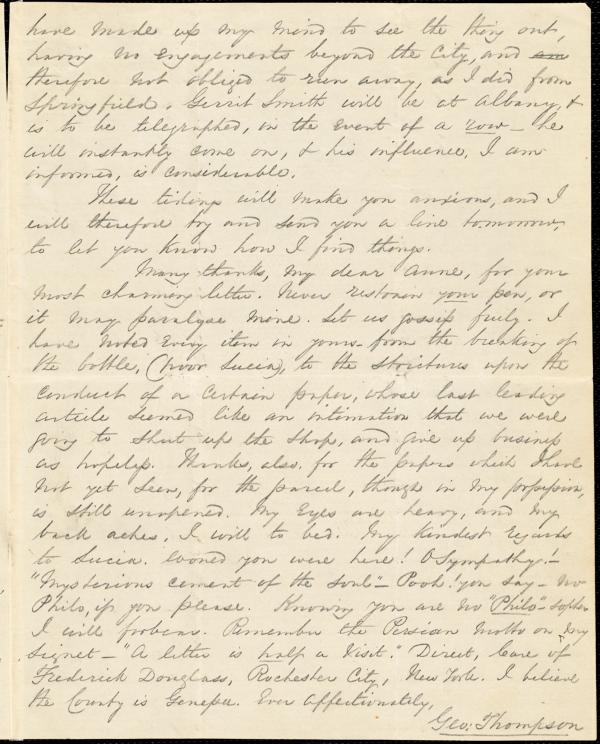 have made up my mind to see the thing out,
having no engagements beyond the City, and am
therefore not obliged to run away, as I did from
Springfield. Gerrit Smith will be at Albany, &
is to be telegraphed, in the event of a row – he
will instantly come on, & his influence, I am
informed, is considerable.
These tidings will make you anxious, and I
will therefore try and send you a line tomorrow,
to let you know how I find things.
Many thanks, my dear Anne, for your
most charming letter. Never restrain your pen, or
it may paralyse mine. Let us gossip freely. I
have noted every item in yours – from the breaking of
the bottle, (poor Lucia), to the strictures upon the
conduct of a certain paper, whose last leading
article seemed like an intimation that we were
going to shut up the shop, and give up business
as hopeless. Thanks, also, for the papers which I have
not yet seen, for the parcel, though in my possession,
is still unopened. My eyes are heavy, and my
back aches. I will to bed. My kindest regards
to Lucia. Would you were here! O Sympathy! –
"Mysterious cement of the soul" – Pooh! you say – no
Philo, if you please. Knowing you are no "Philo"-sopher
I will forbear. Remember the Persian motto on my
signet – "A letter is half a Visit." Direct, Care of
Frederick Douglass, Rochester City, New York. I believe
the County is Genesee. Ever affectionately,
Geo: Thompson